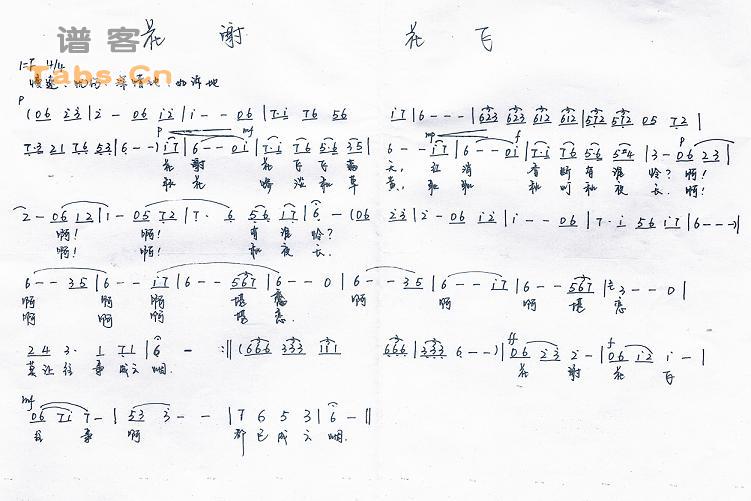 谱客
Tabs.Cn
花 谢 花 飞
1=F 4/4
P
(06 23|2- 06 12|1-- 06|7·1 76 56 17|6---|623 623 612 612|572 572 05 72|
7·3 21 76 53|6--)17|6--01|7·1 76 5·6 35|6--17|6--01|7·1 76 5·6 54|3-06 23|
花 谢 花 飞 飞 满 天, 红 消 香 断 有 谁 怜? 啊!
秋 花 惨 淡 秋 草 黄, 耿 耿 秋 灯 秋 夜 长. 啊!
2-06 12|1-05 72|7·6 56 17|6-(06 23|2-06 12|1--06|7·1 56 17|6---)|
啊! 啊! 有 谁 怜?
啊! 啊! 秋 夜 长.
6--35|6--17|6--567|6--0|6--35|6--17|6--567|3--0|
啊 啊 啊 堪 恋 啊 啊 啊 堪 恋
啊 啊 啊 堪 恋.
24 3·1 71|6-:||(666 333 111 666|333 6--)|06 23 2-|06 12 1-|
莫让往事成云烟. 花 谢 花 飞
mf
06 71 7-|53 3--|7 6 5 3|6-||
往 事 啊 都已成云烟.